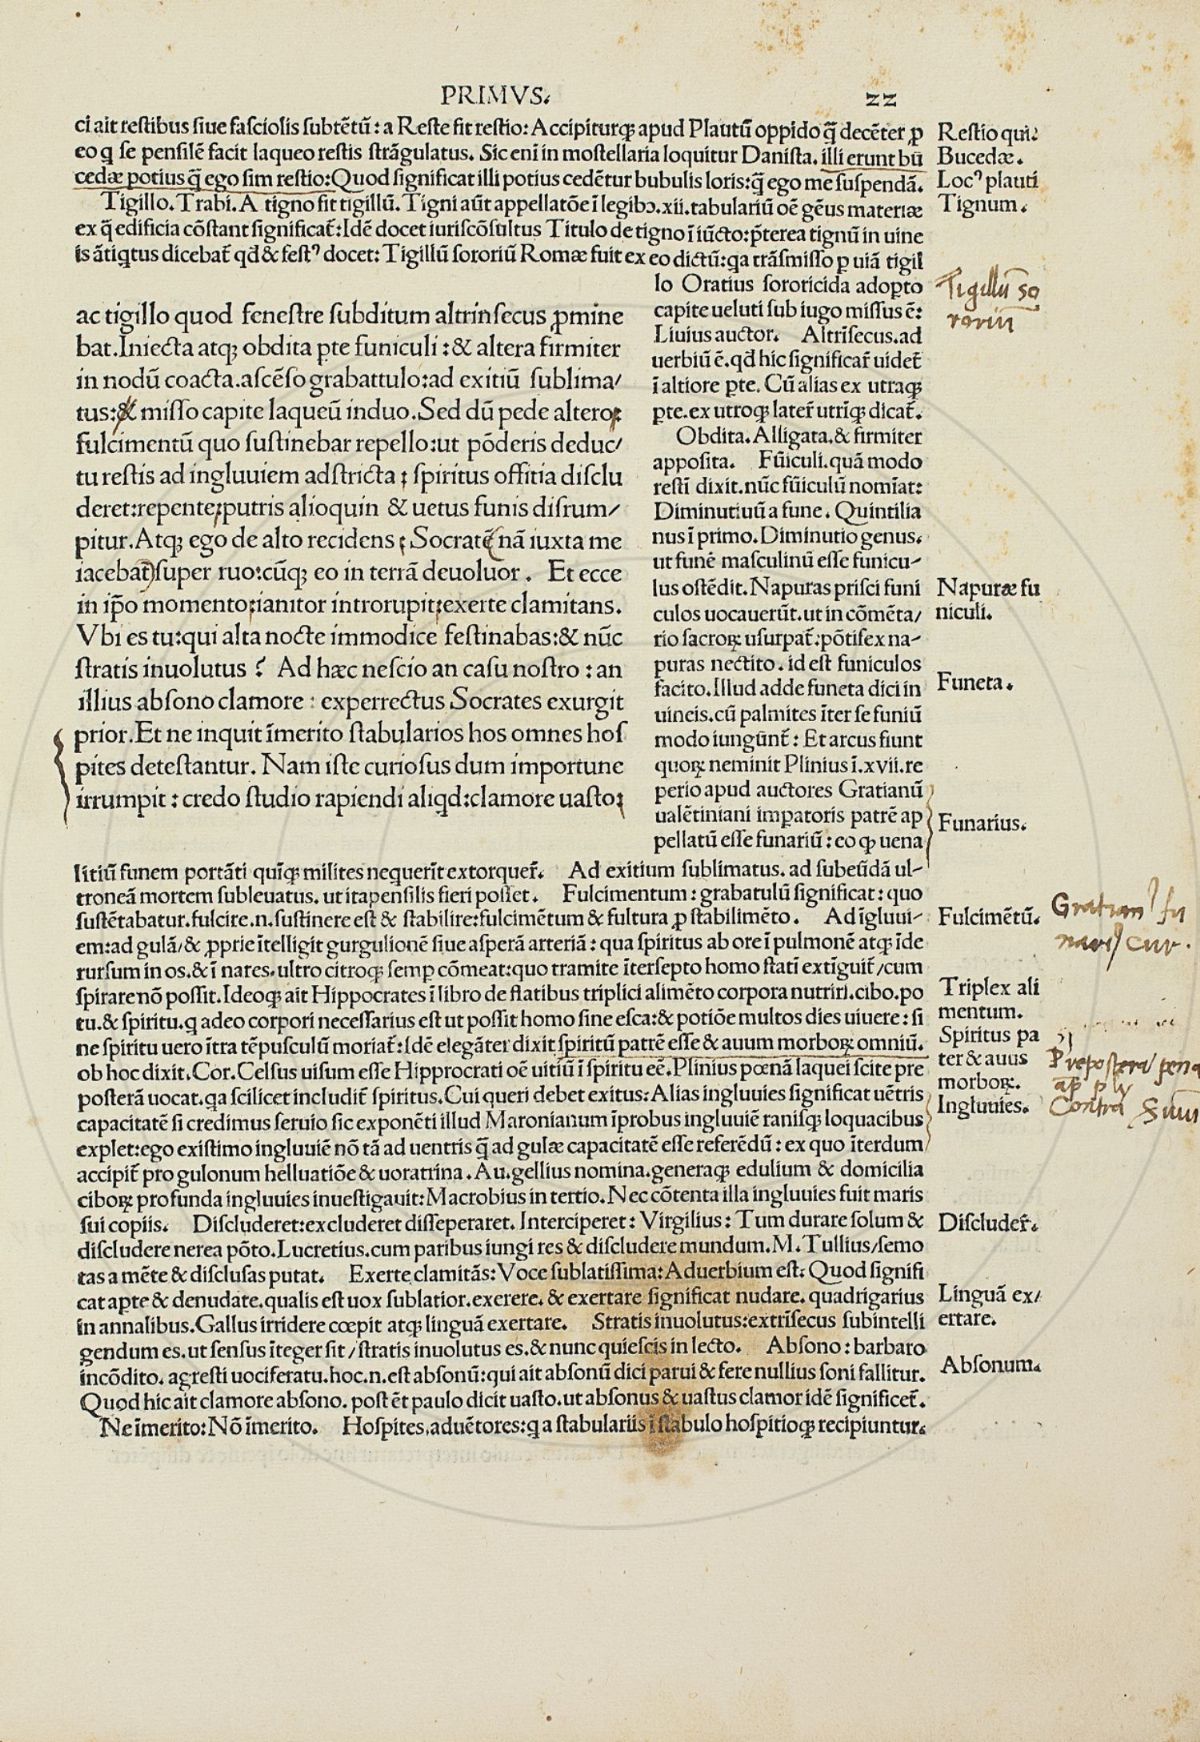 PRIMVS. 22
ci ait reſtibus ſiue faſciolis ſubtētū: a Reſte fit reſtio: Accipiturqꝫ apud Plautū oppido q̄ decēter ꝓ
eo q ſe penſilē facit laqueo reſtis ſtrāgulatus. Sic enī in moſtellaria loquitur Daniſta. illi erunt bū
cedæ potius q̄ ego ſim reſtio: Quod ſignificat illi potius cedētur bubulis loris: q̄ ego me ſuſpendā.
Restio qui:
Bucedæ.
Locꝰ plauti
Tigillo. Trabi. A tigno fit tigillū. Tigni aūt appellatōe ī legibɔ. xii. tabulariū oē gēus materiæ
Tignum.
ex q̄ edificia cōſtant ſignificat̄: Idē docet iuriſcōſultus Titulo de tigno ī iūcto: p̄terea tignū in uine
is ātiq̄tus dicebat̄ qd̄ & feſtꝰ docet: Tigillū ſororiū Romæ fuit ex eo dictū: qa trāſmiſſo ꝑ uiā tigil
lo Oratius ſororicida adoꝑto
capite ueluti ſub iugo miſſus ē:
Liuius auctor. Altrīſecus. ad
uerbiū ē. qd̄ hic ſignificar̄ uidet̄
ī altiore ꝑte. Cū alias ex utraqꝫ
ꝑte. ex utroqꝫ later̄ utrīqꝫ dicat̄.
Obdita. Alligata. & firmiter
appoſita. Fūiculi. quā modo
reſtī dixit. nūc fūiculū nomīat:
Diminutiuū a fune. Quintilia
nus ī primo. Diminutio genus.
ut funē maſculinū eſſe funicu-
lus oſtēdit. Napuras priſci funi
culos uocauerūt. ut in cōmēta/
rio ſacroꝝ uſurpat̄. pōtifex na-
puras nectito. id eſt funiculos
facito. Illud adde funeta dici in
uineis. cū palmites īter ſe funiū
modo iungūnt̄: Et arcus fiunt
quoꝝ neminit Plinius ī. xvii. re
perio apud auctores Gratianū
ualētiniani imꝑatoris patrē ap
pellatū eſſe funariū: eo ꝙ uena
Tigillū so
roriū
Napuræ fu
niculi.
Funeta.
Funarius.
ac tigillo quod feneſtre ſubditum altrinſecus ꝓmine
bat. Iniecta atqꝫ obdita ꝑte funiculi: & altera firmiter
in nodū coacta. aſcēſo grabattulo: ad exitiū ſublima/
tus: & miſſo capite laqueū induo. Sed dū pede altero
fulcimentū quo ſuſtinebar repello: ut pōderis deduc/
tu reſtis ad ingluuiem adſtricta: ſpiritus offitia diſclu
deret: repente: putris alioquin & uetus funis diſrum/
pitur. Atqꝫ ego de alto recidens: Socratē nā iuxta me
iacebat) ſuper ruo: cūqꝫ eo in terrā deuoluor. Et ecce
in ip̄o momento: ianitor introrupit: exerte clamitans.
Vbi es tu: qui alta nocte immodice feſtinabas: & nūc
ſtratis inuolutus? Ad hæc neſcio an caſu noſtro: an
illius abſono clamore: experrectus Socrates exurgit
prior. Et ne inquit īmerito ſtabularios hos omnes hoſ
pites deteſtantur. Nam iſte curioſus dum importune
irrumpit: credo ſtudio rapiendi aliqd: clamore uaſto:
litiū funem portāti quīqꝫ milites nequerīt extorquer̄. Ad exitium ſublimatus. ad ſubeūdā ul-
troneā mortem ſubleuatus. ut ita penſilis fieri poſſet. Fulcimentum: grabatulū ſignificat: quo
ſuſtētabatur. fulcire. n. ſuſtinere eſt & ſtabilire: fulcimētum & fultura ꝓ ſtabilimēto. Ad īgluui-
Fulcimētū.
Gratianꝰ fu
nariꝰ cur.
em: ad gulā/ & ꝓprie ītelligit gurgulionē ſiue aſperā arteriā: qua ſpiritus ab ore ī pulmonē atqꝫ īde
rurſum in os. & ī nares. ultro citroqꝫ ſemꝑ cōmeat: quo tramite īterſepto homo ſtatī extīguit̄/ cum
ſpirare nō poſſit. Ideoqꝫ ait Hippocrates ī libro de flatibus triplici alimēto corpora nutriri. cibo. po
tu. & ſpiritu. q adeo corpori neceſſarius eſt ut poſſit homo ſine eſca: & potiōe multos dies uiuere: ſi
ne ſpiritu uero ītra tēpuſculū moriat̄: Idē elegāter dixit ſpiritū patrē eſſe & auum morboꝝ omniū.
Triplex ali
mentum.
Spiritus pa
ter & auus
morboꝝ.
ob hoc dixit. Cor. Celſus uiſum eſſe Hipprocrati oē uitiū ī ſpiritu eē. Plinius pœnā laquei ſcite pre
poſterā uocat. qa ſcilicet includit̄ ſpiritus. Cui queri debet exitus: Alias ingluuies ſignificat uētris
Ingluuies.
Prepostera pena
ap ply
Contra
capacitatē ſi credimus ſeruio ſic exponēti illud Maronianum īprobus ingluuiē raniſqꝫ loquacibus
explet: ego exiſtimo ingluuiē nō tā ad uentris q̄ ad gulæ capacitatē eſſe referēdū: ex quo īterdum
accipit̄ pro gulonum helluatiōe & uoratrina. Au. gellius nomina. generaqꝫ edulium & domicilia
ciboꝝ profunda ingluuies inueſtigauit: Macrobius in tertio. Nec cōtenta illa ingluuies fuit maris
ſui copiis. Diſcluderet: excluderet diſſeperaret. Interciperet: Virgilius: Tum durare ſolum &
Diſcluder̄.
diſcludere nerea pōto. Lucretius. cum paribus iungi res & diſcludere mundum. M. Tullius/ ſemo
tas a mēte & diſcluſas putat. Exerte clamitās: Voce ſublatiſſima: Aduerbium eſt. Quod ſignifi
cat apte & denudate. qualis eſt uox ſublatior. exerere. & exertare ſignificat nudare. quadrigarius
in annalibus. Gallus irridere cœpit atqꝫ linguā exertare. Stratis inuolutus: extrīſecus ſubintelli
Linguā ex/
ertare.
gendum es. ut ſenſus īteger ſit/ ſtratis inuolutus es. & nunc quieſcis in lecto. Abſono: barbaro
incōdito. agreſti uociferatu. hoc. n. eſt abſonū: qui ait abſonū dici parui & fere nullius ſoni fallitur.
Abſonum.
Quod hic ait clamore abſono. poſt ēt paulo dicit uaſto. ut abſonus & uaſtus clamor idē ſignificet̄.
Ne īmerito: Nō īmerito. Hoſpites, aduētores: q a ſtabulariis ī ſtabulo hoſpitioqꝫ recipiuntur.